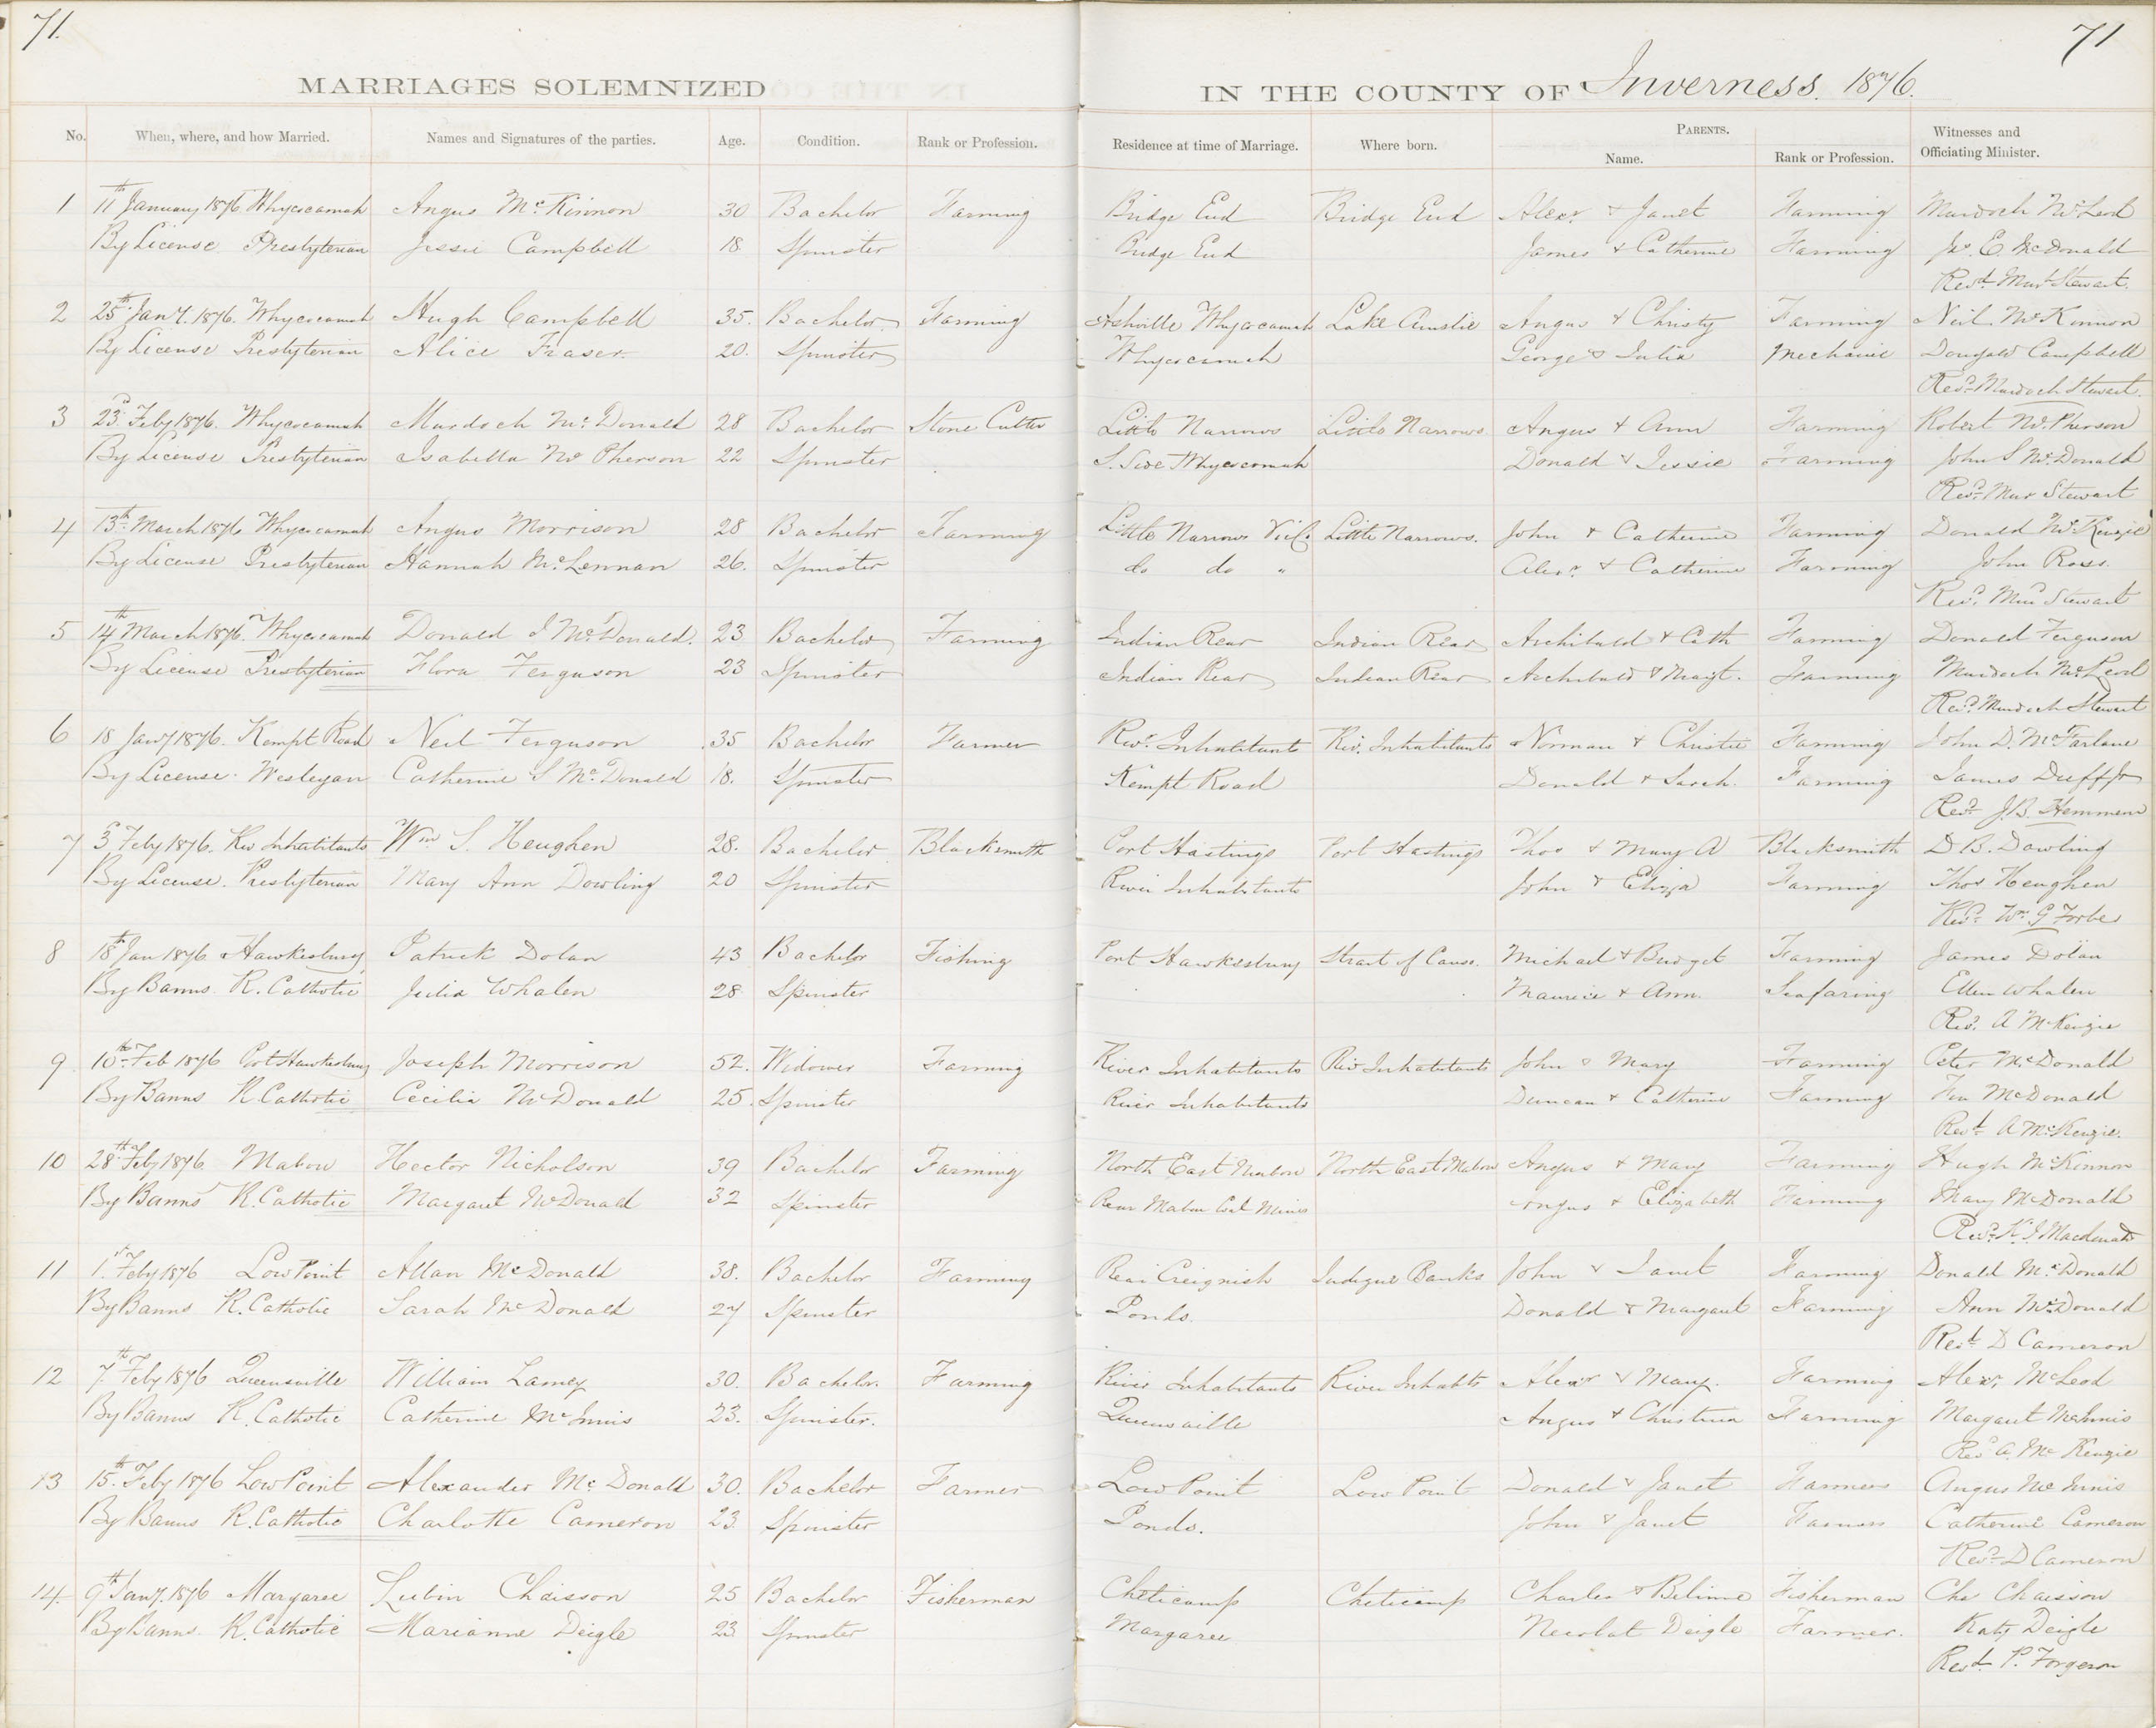 71.
71
MARRIAGES SOLEMNIZED IN THE COUNTY OF Inverness. 1876.
No. When, where, and how Married. Names and Signatures of the parties. Age. Condition. Rank or Profession. Residence at time of Marriage. Where born. PARENTS. Name. Rank or Profession. Witnesses and Officiating Minister.
1 11th January 1876 Whycocomah Angus McKinnon 30 Bachelor Farming Bridge End Bridge End Alexr & Janet Farming Murdoch McLeod
By License Presbyterian Jessie Campbell 18. Spinster Bridge End James & Catherine Farming Js. E. McDonald
Revd. Murd Stewart.
2 25th Jany. 1876. Whycocomah Hugh Campbell 35. Bachelor Farming Ashville Whycocomah Lake Ainslie Angus & Christy Farming Neil McKinnon
By License Presbyterian Alice Fraser. 20. Spinster Whycocomah George & Julia Mechanic Dougald Campbell
Revd. Murdoch Stewart.
3 23d. Feby 1876. Whycocomah Murdoch McDonald 28 Bachelor Stone Cutter Little Narrows Little Narrows. Angus & Ann Farming Robert McPherson
By License Presbyterian Isabella McPherson 22 Spinster S. Side Whycocomah Donald & Jessie Farming John S McDonald
Revd. Mur Stewart
4 13th. March 1876 Whycocomah Angus Morrison 28 Bachelor Farming Little Narrows Vic. Little Narrows. John & Catherine Farming Donald McKenzie
By License Presbyterian Hannah McLennan 26. Spinster do do " Alexr. & Catherine Farming John Ross.
Revd. Murd Stewart
5 14th March 1876. Whycocomah Donald J McDonald. 23 Bachelor Farming Indian Rear Indian Rear Archibald & Cath Farming Donald Ferguson
By License Presbyterian Flora Ferguson 23 Spinster Indian Rear Indian Rear Archibald & Margt. Farming Murdoch McLeod
Revd. Murdoch Stewart
6 18 Jany 1876. Kempt Road Neil Ferguson 35 Bachelor Farmer Rivr. Inhabitants Riv. Inhabitants Norman & Christie Farming John D. McFarlane
By License. Wesleyan Catherine S McDonald 18. Spinster Kempt Road Donald & Sarah. Farming James Duff Jr
Revd. J.B. Hemmeon
7 3d Feby 1876. Riv Inhabitants Wm S. Heughen 28. Bachelor Blacksmith Port Hastings Port Hastings Thos & Mary A Blacksmith D B. Dowling
By License. Presbyterian Mary Ann Dowling 20 Spinster River Inhabitants John & Eliza Farming Thos Heughen
Revd. Wm. G Forbes
8 18th Jan 1876 Hawkesbury Patrick Dolan 43 Bachelor Fishing Port Hawkesbury Strait of Canso. Michael & Bridget Farming James Dolan
By Banns. R. Catholic Julia Whalen 28 Spinster Maurice & Ann. Seafaring Ellen Whalen
Revd. A McKenzie
9 10th. Feb 1876 Port Hawkesbury Joseph Morrison 52. Widower Farming River Inhabitants Riv Inhabitants John & Mary Farming Peter McDonald
By Banns R. Catholic Cecilia McDonald 25. Spinster River Inhabitants Duncan & Catherine Farming McDonald
Revd. A McKenzie.
10 28th Feby 1876. Mabou Hector Nicholson 39 Bachelor Farming North East Mabou North East Mabou Angus & Mary Farming Hugh McKinnon
By Banns R. Catholic Margaret McDonald 32 Spinster Rear Mabou Coal Mines Angus & Elizabeth Farming Mary McDonald
Revd. K. J. Macdonald
11 1st. Feby 1876 Low Point Allan McDonald 38. Bachelor Farming Rear Creignish Judique Banks John & Janet Farming Donald McDonald
By Banns R. Catholic Sarah McDonald 27 Spinster Ponds. Donald & Margaret Farming Ann McDonald
Revd. D Cameron
12 7.th Feby 1876 Queensville William Lamey 30. Bachelor. Farming River Inhabitants River Inhabts Alexr & Mary. Farming Alexr. McLeod
By Banns R. Catholic Catherine McInnis 23. Spinster. Queensville Angus & Christina Farming Margaret McInnis
Revd A. McKenzie
13 15th. Feby 1876 Low Point Alexander McDonald 30. Bachelor Farmer Low Point Low Point Donald & Janet Farmers Angus McInnis
By Banns R. Catholic Charlotte Cameron 23 Spinster Ponds. John & Janet Farmers Catherine Cameron
Revd. D Cameron
14. 9th Jany. 1876 Margaree Lubin Chaisson 25 Bachelor Fisherman Cheticamp Cheticamp Charles & Fisherman Chs Chaisson
By Banns. R. Catholic Marianne Deigle 23 Spinster Margaree Deigle Farmer. Katy Deigle
Revd. P. Forgeron